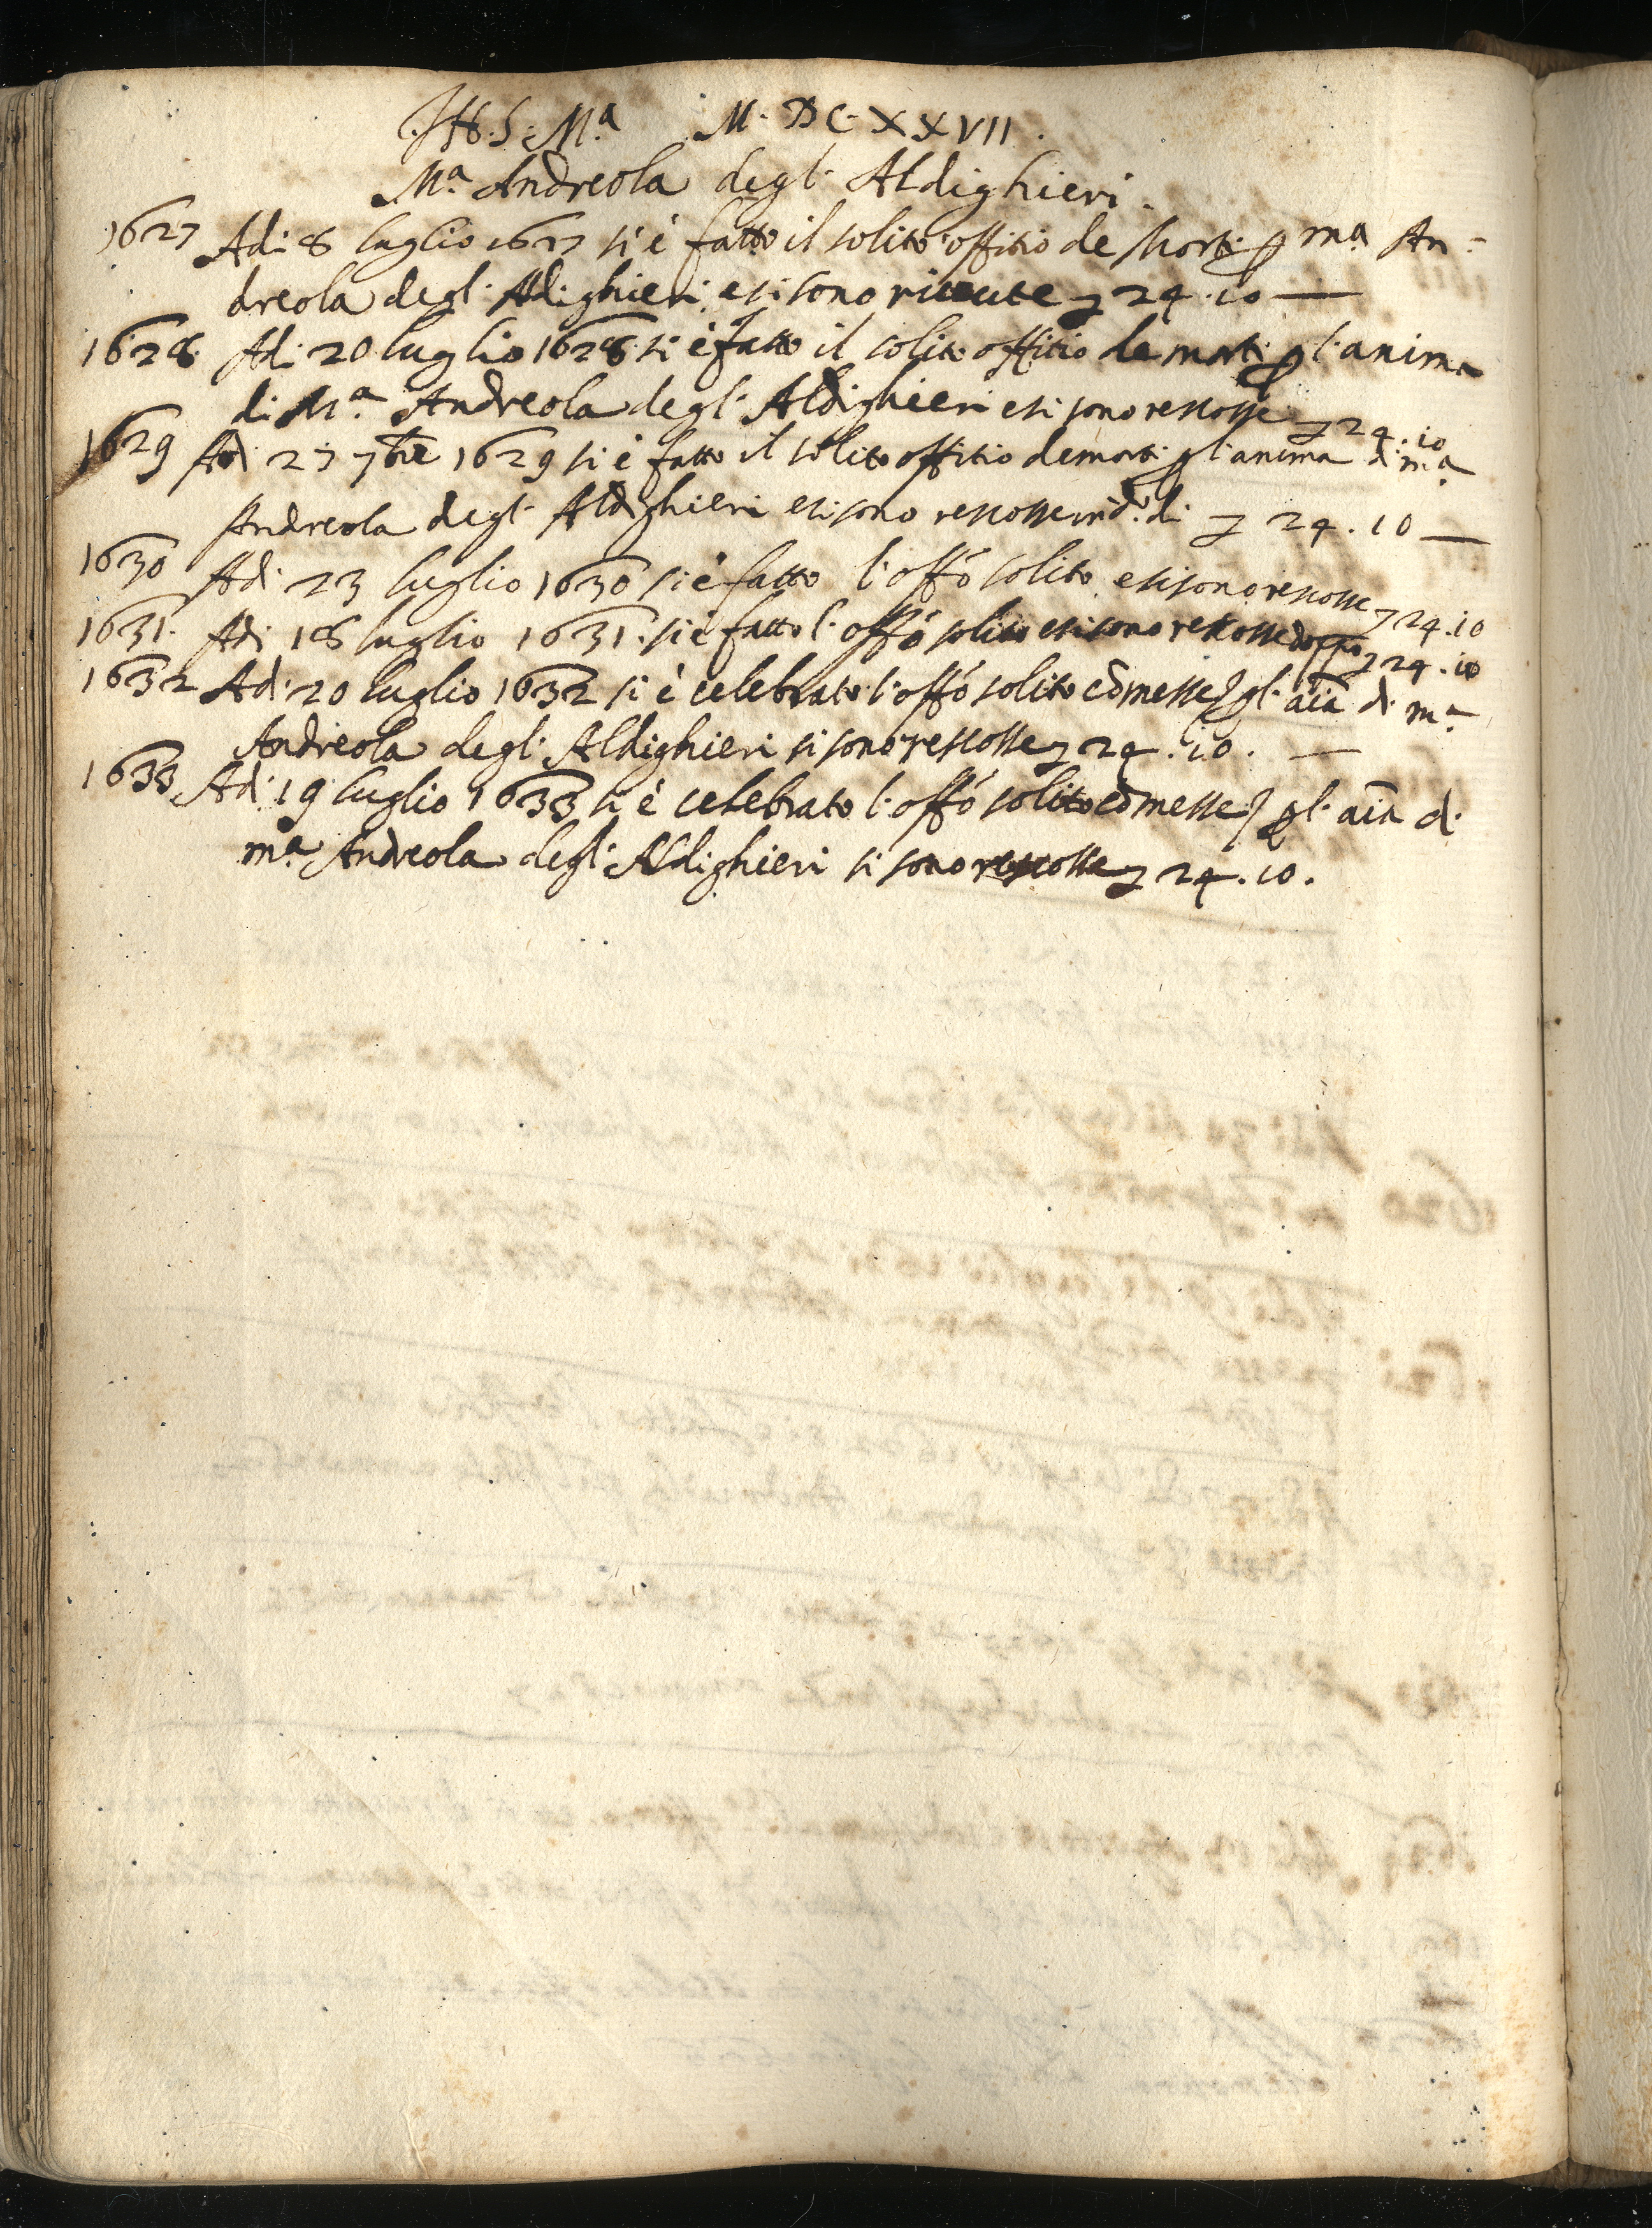 .JHS. Mᵃ M. DC. XXVII.
Mᵃ. Andreola degl. Aldighieri.
1627 Adi 8 luglio 1627 si è fatto il solito offitio de Morti p mᵃ An=
dreola degl. Aldighieri, e si sono riceute 24.10 —
1628. Adi 20 luglio 1628. si è fatto il solito offitio de morti p l. anima
di Mᵃ Andreola degl. Aldighieri e si sono rescosse 24.10
1629 Adi 27 7bre 1629 si è fatto il solito offitio de morti p l. anima di mᵃ
Andreola degl. Aldighieri e si sono rescosse in dᵒ. di 24.10 —
1630 Adi 23 luglio 1630 si è fatto l. offō solito, e si sono rescosse 24.10
1631. Adi 18 luglio 1631. si è fatto l. offō solito e si sono rescosse doppo 24.10
1632 Adi 20 luglio 1632 si è celebrato l. offō solito cō messe p l. aīa di mᵃ
Andreola degl. Aldighieri si sono rescosse 24.10. —
1633 Adi 19 luglio 1633 si è celebrato l. offō solito cō messe p l. aīa di
mᵃ Andreola degl. Aldighieri si sono rescosse 24.10.